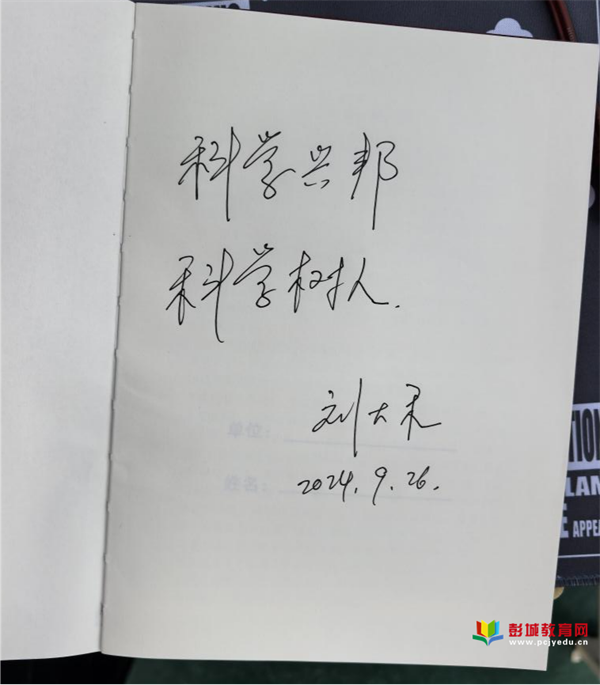 科学兴邦
科学树人.
刘大
2024.9.26.
单位:
姓名:
TION
LAN
E APPEA
彭城教育网
www.pcjyedu.cn